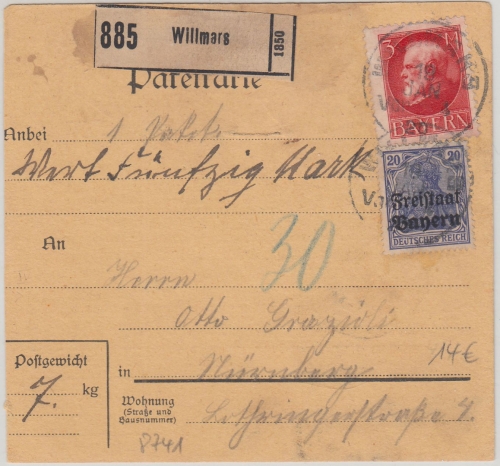 885 Willmars 1850
Paketkarte
3 M
BAYERN
Anbei 1 Paket
Wert Fünfzig Mark
20 20
Freistaat
Bayern
DEUTSCHES REICH
An
30
Herrn
Otto Grazioli
14€
Postgewicht
7. kg
in Nürnberg
Wohnung
(Straße und
Hausnummer)
Lothringerstraße 4.
8741